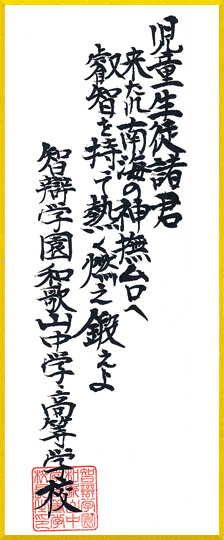 児童生徒諸君
来たれ南海の神撫台へ
叡智を持って熱く燃え鍛えよ
智辯学園和歌山中学・高等学校
智辯学園
和歌山中